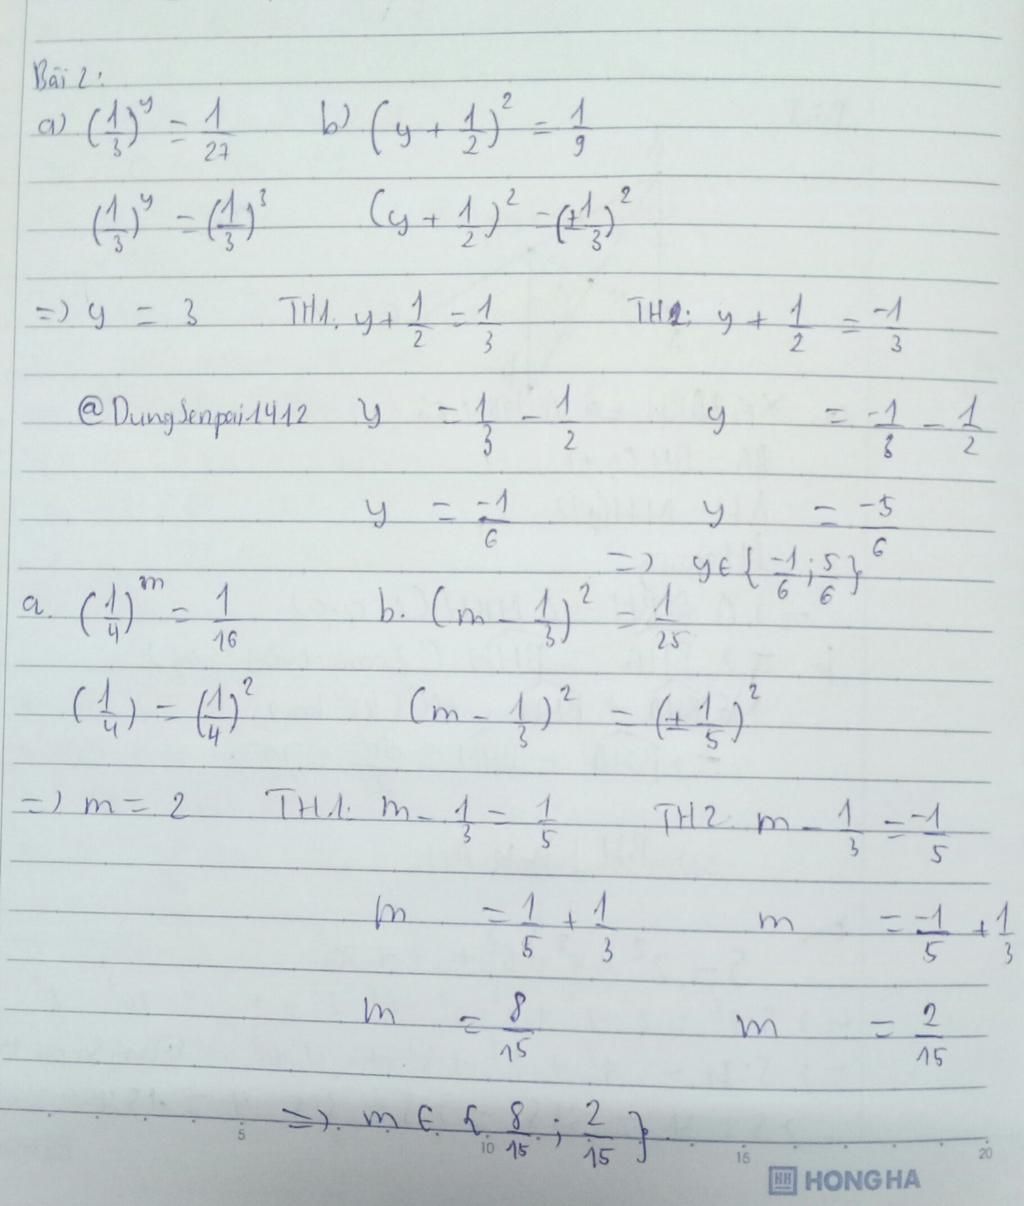 Bài 2:
a) (1/3)^y = 1/27 b) (y + 1/2)^2 = 1/9
(1/3)^y = (1/3)^3 (y + 1/2)^2 = (±1/3)^2
=) y = 3 TH1: y + 1/2 = 1/3 TH2: y + 1/2 = -1/3
@DungSenpai1412 y = 1/3 - 1/2 y = -1/3 - 1/2
y = -1/6 y = -5/6
=) y ∈ {-1/6 ; 5/6}
a. (1/4)^m = 1/16 b. (m - 1/3)^2 = 1/25
(1/4) = (1/4)^2 (m - 1/3)^2 = (±1/5)^2
=) m = 2 TH1: m - 1/3 = 1/5 TH2 m - 1/3 = -1/5
m = 1/5 + 1/3 m = -1/5 + 1/3
m = 8/15 m = 2/15
=) m ∈ {8/15 ; 2/15}
5 10 15 20
HH HONG HA